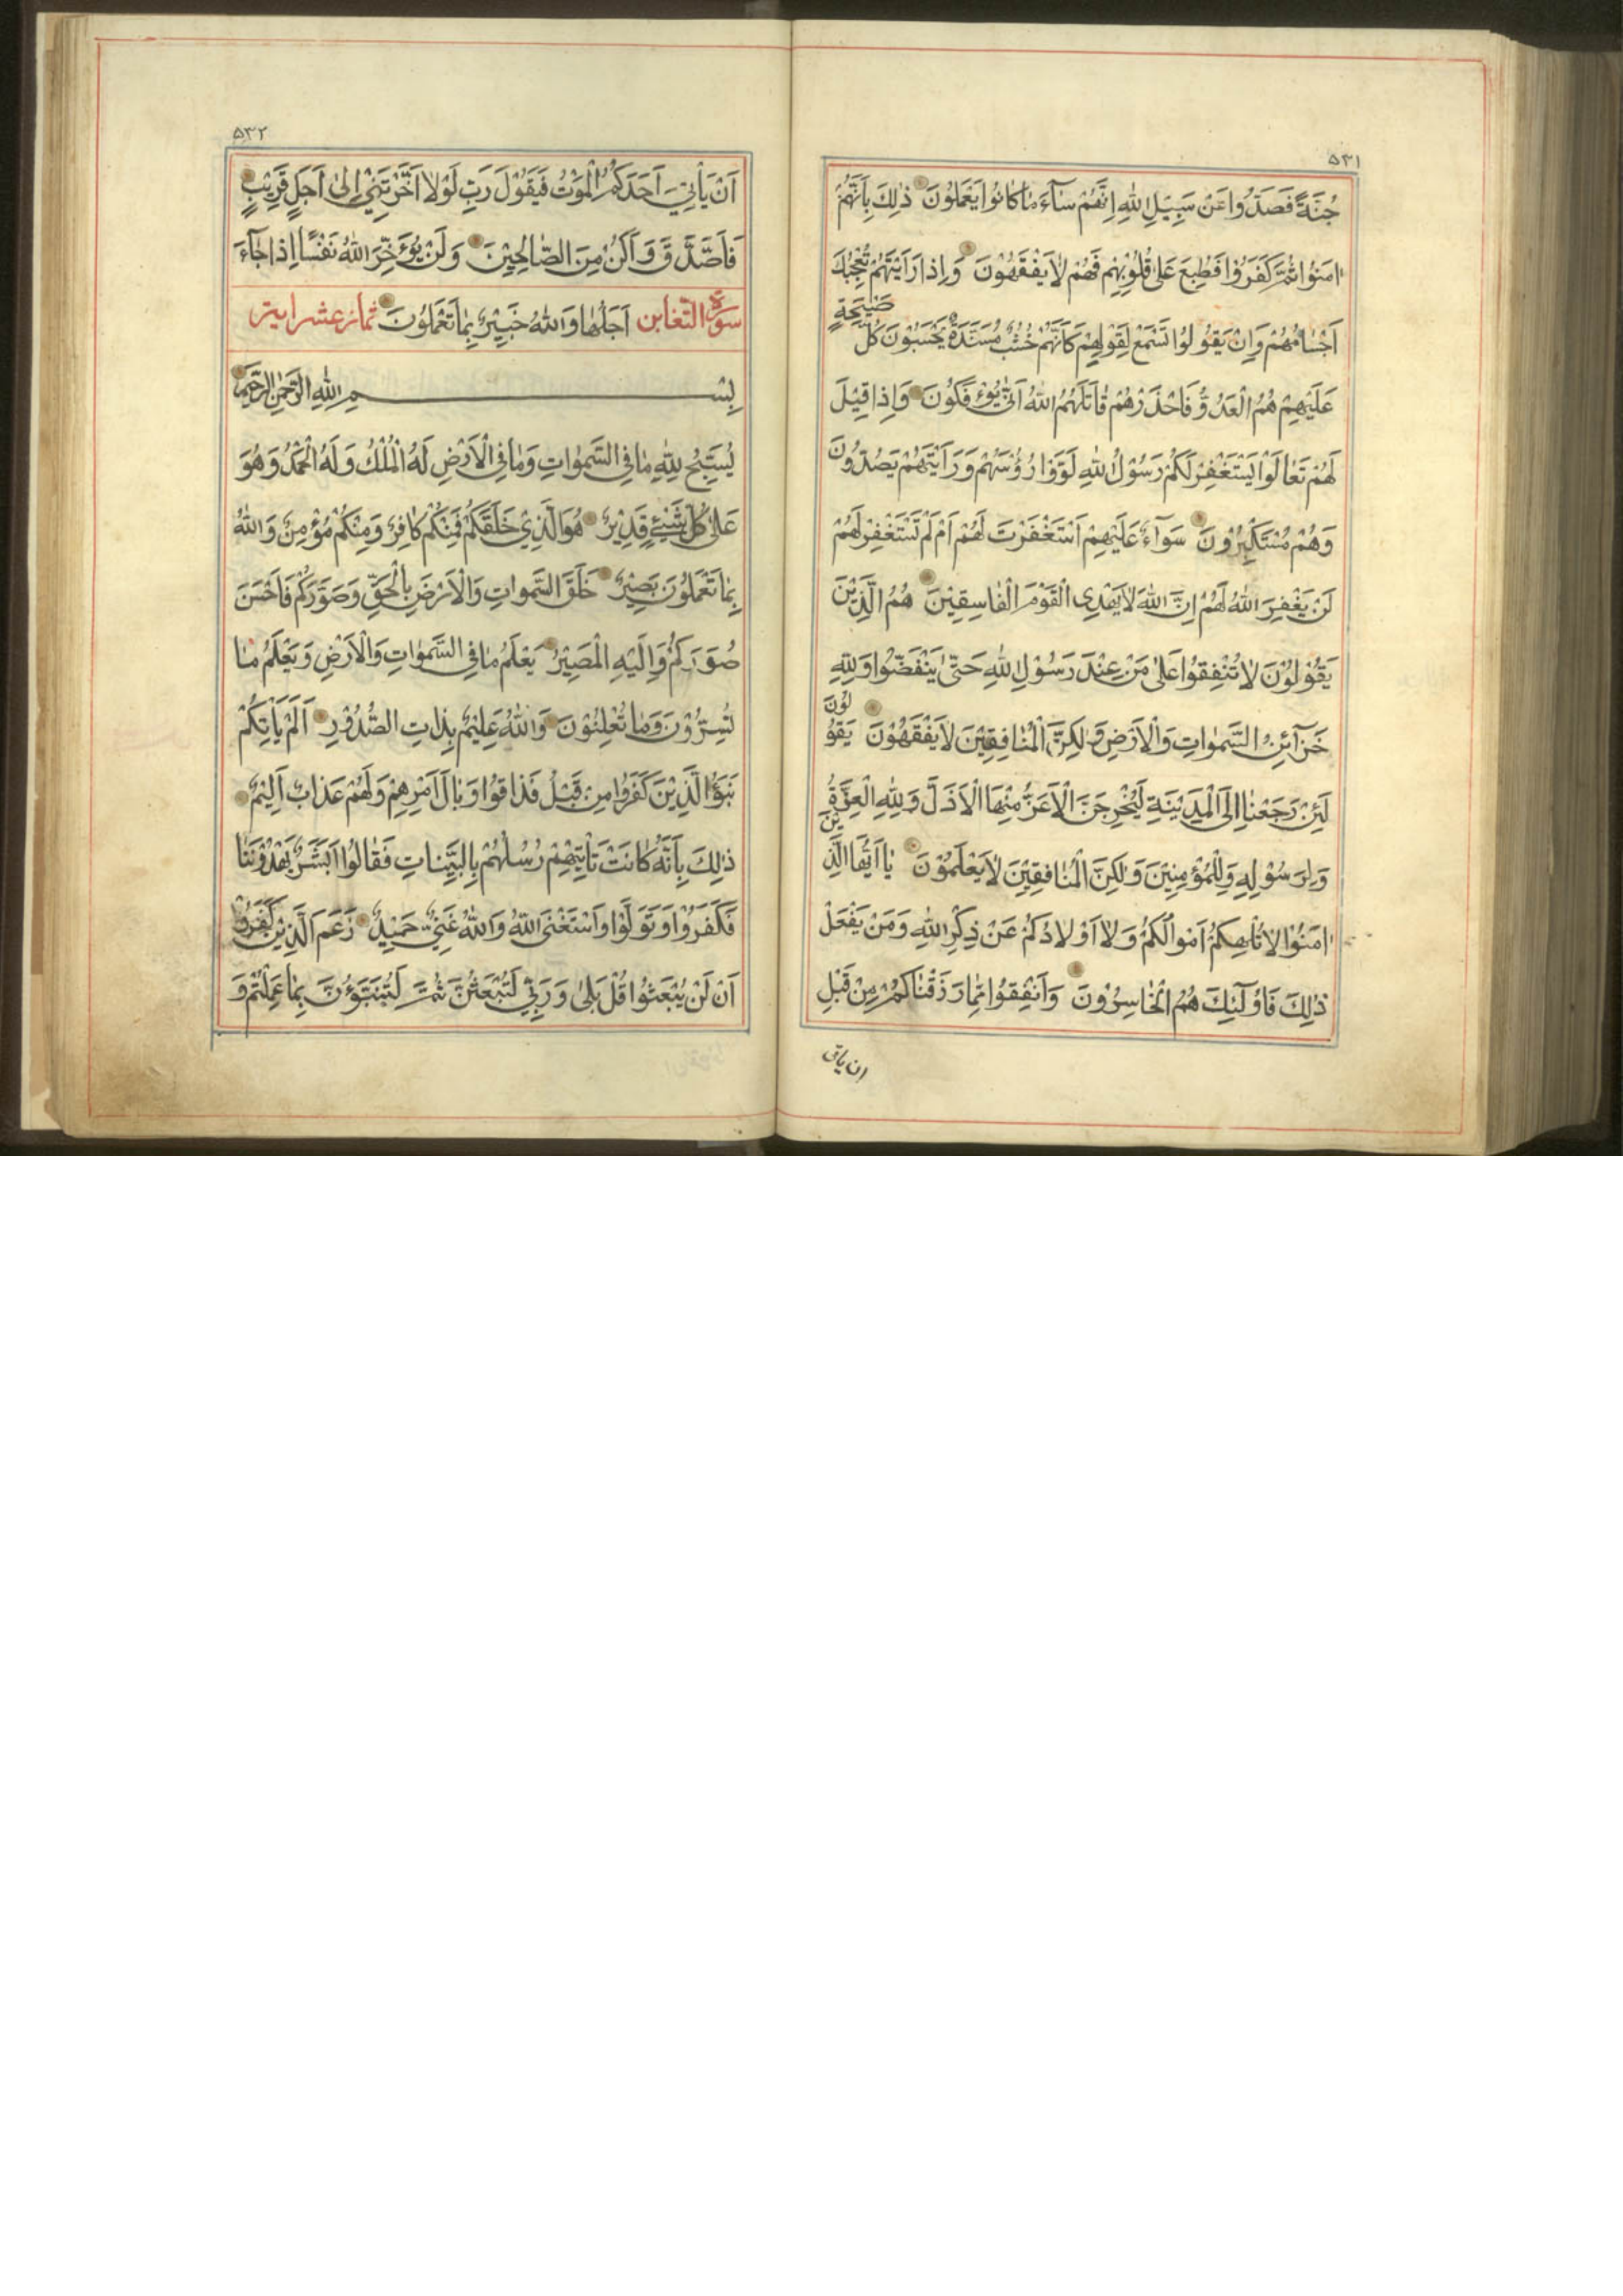 ۵۳۱
جُنَّةً فَصَدُّوا عَنْ سَبِيلِ اللهِ اِنَّهُمْ سَآءَ مَا كَانُوا يَعْمَلُونَ ذٰلِكَ بِاَنَّهُمْ
اٰمَنُوا ثُمَّ كَفَرُوا فَطُبِعَ عَلٰى قُلُوبِهِمْ فَهُمْ لَا يَفْقَهُونَ وَاِذَا رَاَيْتَهُمْ تُعْجِبُكَ
اَجْسَامُهُمْ وَاِنْ يَقُولُوا تَسْمَعْ لِقَوْلِهِمْ كَاَنَّهُمْ خُشُبٌ مُسَنَّدَةٌ يَحْسَبُونَ كُلَّ صَيْحَةٍ
عَلَيْهِمْ هُمُ الْعَدُوُّ فَاحْذَرْهُمْ قَاتَلَهُمُ اللهُ اَنّٰى يُؤْفَكُونَ وَاِذَا قِيْلَ
لَهُمْ تَعَالَوْا يَسْتَغْفِرْ لَكُمْ رَسُوْلُ اللهِ لَوَّوْا رُؤُسَهُمْ وَرَاَيْتَهُمْ يَصُدُّونَ
وَهُمْ مُسْتَكْبِرُوْنَ سَوَآءٌ عَلَيْهِمْ اَسْتَغْفَرْتَ لَهُمْ اَمْ لَمْ تَسْتَغْفِرْ لَهُمْ
لَنْ يَغْفِرَ اللهُ لَهُمْ اِنَّ اللهَ لَا يَهْدِى الْقَوْمَ الْفَاسِقِيْنَ هُمُ الَّذِيْنَ
يَقُوْلُوْنَ لَا تُنْفِقُوْا عَلٰى مَنْ عِنْدَ رَسُوْلِ اللهِ حَتّٰى يَنْفَضُّوْا وَلِلّٰهِ
خَزَآئِنُ السَّمٰوَاتِ وَالْاَرْضِ وَلٰكِنَّ الْمُنَافِقِيْنَ لَا يَفْقَهُوْنَ يَقُوْلُوْنَ
لَئِنْ رَجَعْنَا اِلَى الْمَدِيْنَةِ لَيُخْرِجَنَّ الْاَعَزُّ مِنْهَا الْاَذَلَّ وَلِلّٰهِ الْعِزَّةُ
وَلِرَسُوْلِهِ وَلِلْمُؤْمِنِيْنَ وَلٰكِنَّ الْمُنَافِقِيْنَ لَا يَعْلَمُوْنَ يَا اَيُّهَا الَّذِيْنَ
اٰمَنُوْا لَا تُلْهِكُمْ اَمْوَالُكُمْ وَلَا اَوْلَادُكُمْ عَنْ ذِكْرِ اللهِ وَمَنْ يَفْعَلْ
ذٰلِكَ فَاُولٰئِكَ هُمُ الْخَاسِرُوْنَ وَاَنْفِقُوْا مِمَّا رَزَقْنَاكُمْ مِنْ قَبْلِ
ان ياتى
۵۳۲
اَنْ يَاْتِيَ اَحَدَكُمُ الْمَوْتُ فَيَقُوْلَ رَبِّ لَوْلَا اَخَّرْتَنِيْ اِلٰى اَجَلٍ قَرِيْبٍ
فَاَصَّدَّقَ وَاَكُنْ مِنَ الصَّالِحِيْنَ وَلَنْ يُؤَخِّرَ اللهُ نَفْسًا اِذَا جَآءَ
سورة التغابن اَجَلُهَا وَاللهُ خَبِيْرٌ بِمَا تَعْمَلُوْنَ ثمان عشر اية
بِسْمِ اللهِ الرَّحْمٰنِ الرَّحِيْمِ
يُسَبِّحُ لِلّٰهِ مَا فِي السَّمٰوَاتِ وَمَا فِي الْاَرْضِ لَهُ الْمُلْكُ وَلَهُ الْحَمْدُ وَهُوَ
عَلٰى كُلِّ شَيْءٍ قَدِيْرٌ هُوَ الَّذِيْ خَلَقَكُمْ فَمِنْكُمْ كَافِرٌ وَمِنْكُمْ مُؤْمِنٌ وَاللهُ
بِمَا تَعْمَلُوْنَ بَصِيْرٌ خَلَقَ السَّمٰوَاتِ وَالْاَرْضَ بِالْحَقِّ وَصَوَّرَكُمْ فَاَحْسَنَ
صُوَرَكُمْ وَاِلَيْهِ الْمَصِيْرُ يَعْلَمُ مَا فِي السَّمٰوَاتِ وَالْاَرْضِ وَيَعْلَمُ مَا
تُسِرُّوْنَ وَمَا تُعْلِنُوْنَ وَاللهُ عَلِيْمٌ بِذَاتِ الصُّدُوْرِ اَلَمْ يَاْتِكُمْ
نَبَؤُا الَّذِيْنَ كَفَرُوْا مِنْ قَبْلُ فَذَاقُوْا وَبَالَ اَمْرِهِمْ وَلَهُمْ عَذَابٌ اَلِيْمٌ
ذٰلِكَ بِاَنَّهُ كَانَتْ تَاْتِيْهِمْ رُسُلُهُمْ بِالْبَيِّنَاتِ فَقَالُوْا اَبَشَرٌ يَهْدُوْنَنَا
فَكَفَرُوْا وَتَوَلَّوْا وَاسْتَغْنَى اللهُ وَاللهُ غَنِيٌّ حَمِيْدٌ زَعَمَ الَّذِيْنَ كَفَرُوْا
اَنْ لَنْ يُبْعَثُوْا قُلْ بَلٰى وَرَبِّيْ لَتُبْعَثُنَّ ثُمَّ لَتُنَبَّؤُنَّ بِمَا عَمِلْتُمْ وَ